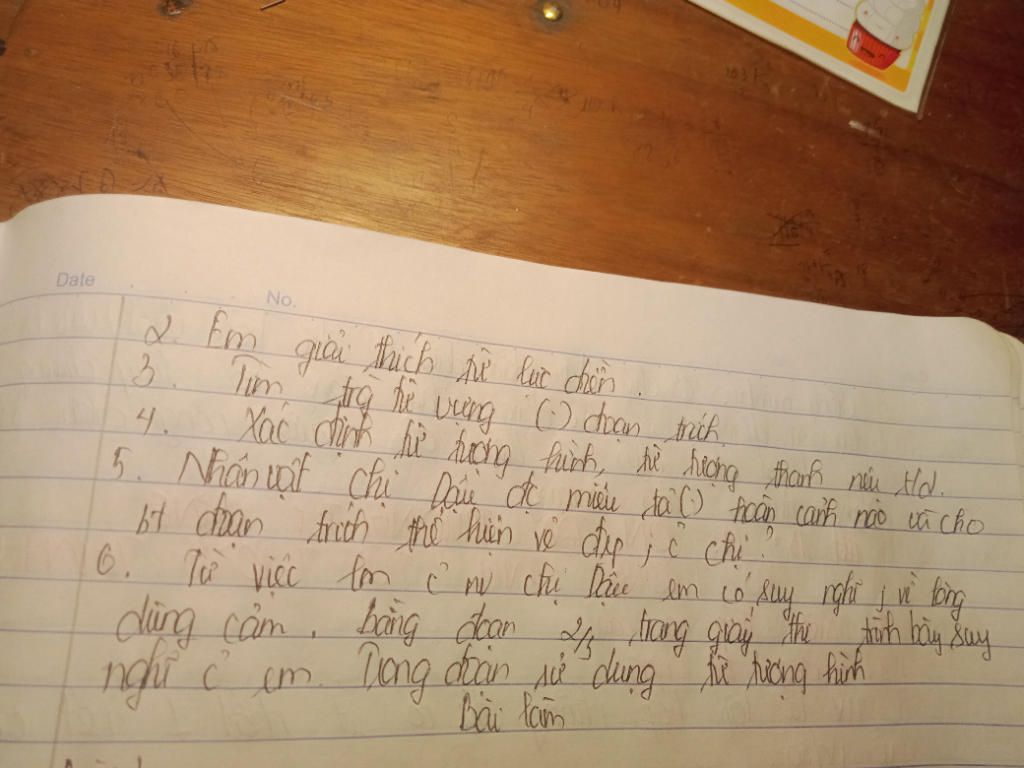 Date
No.
2. Em giải thích từ lực điền.
3. Tìm trg từ vựng (.) đoạn trích.
4. Xác định từ tượng hình, từ tượng thanh nêu td.
5. Nhân vật chị Dậu đc miêu tả (.) hoàn cảnh nào và cho
bt đoạn trích thể hiện vẻ đẹp j c̉ chị?
6. Từ việc làm c̉ nv chị Dậu em có suy nghĩ j về lòng
dũng cảm. bằng đoạn 2/3 trang giấy thi trình bày suy
nghĩ c̉ em. Trong đoạn sử dụng từ tượng hình
Bài làm